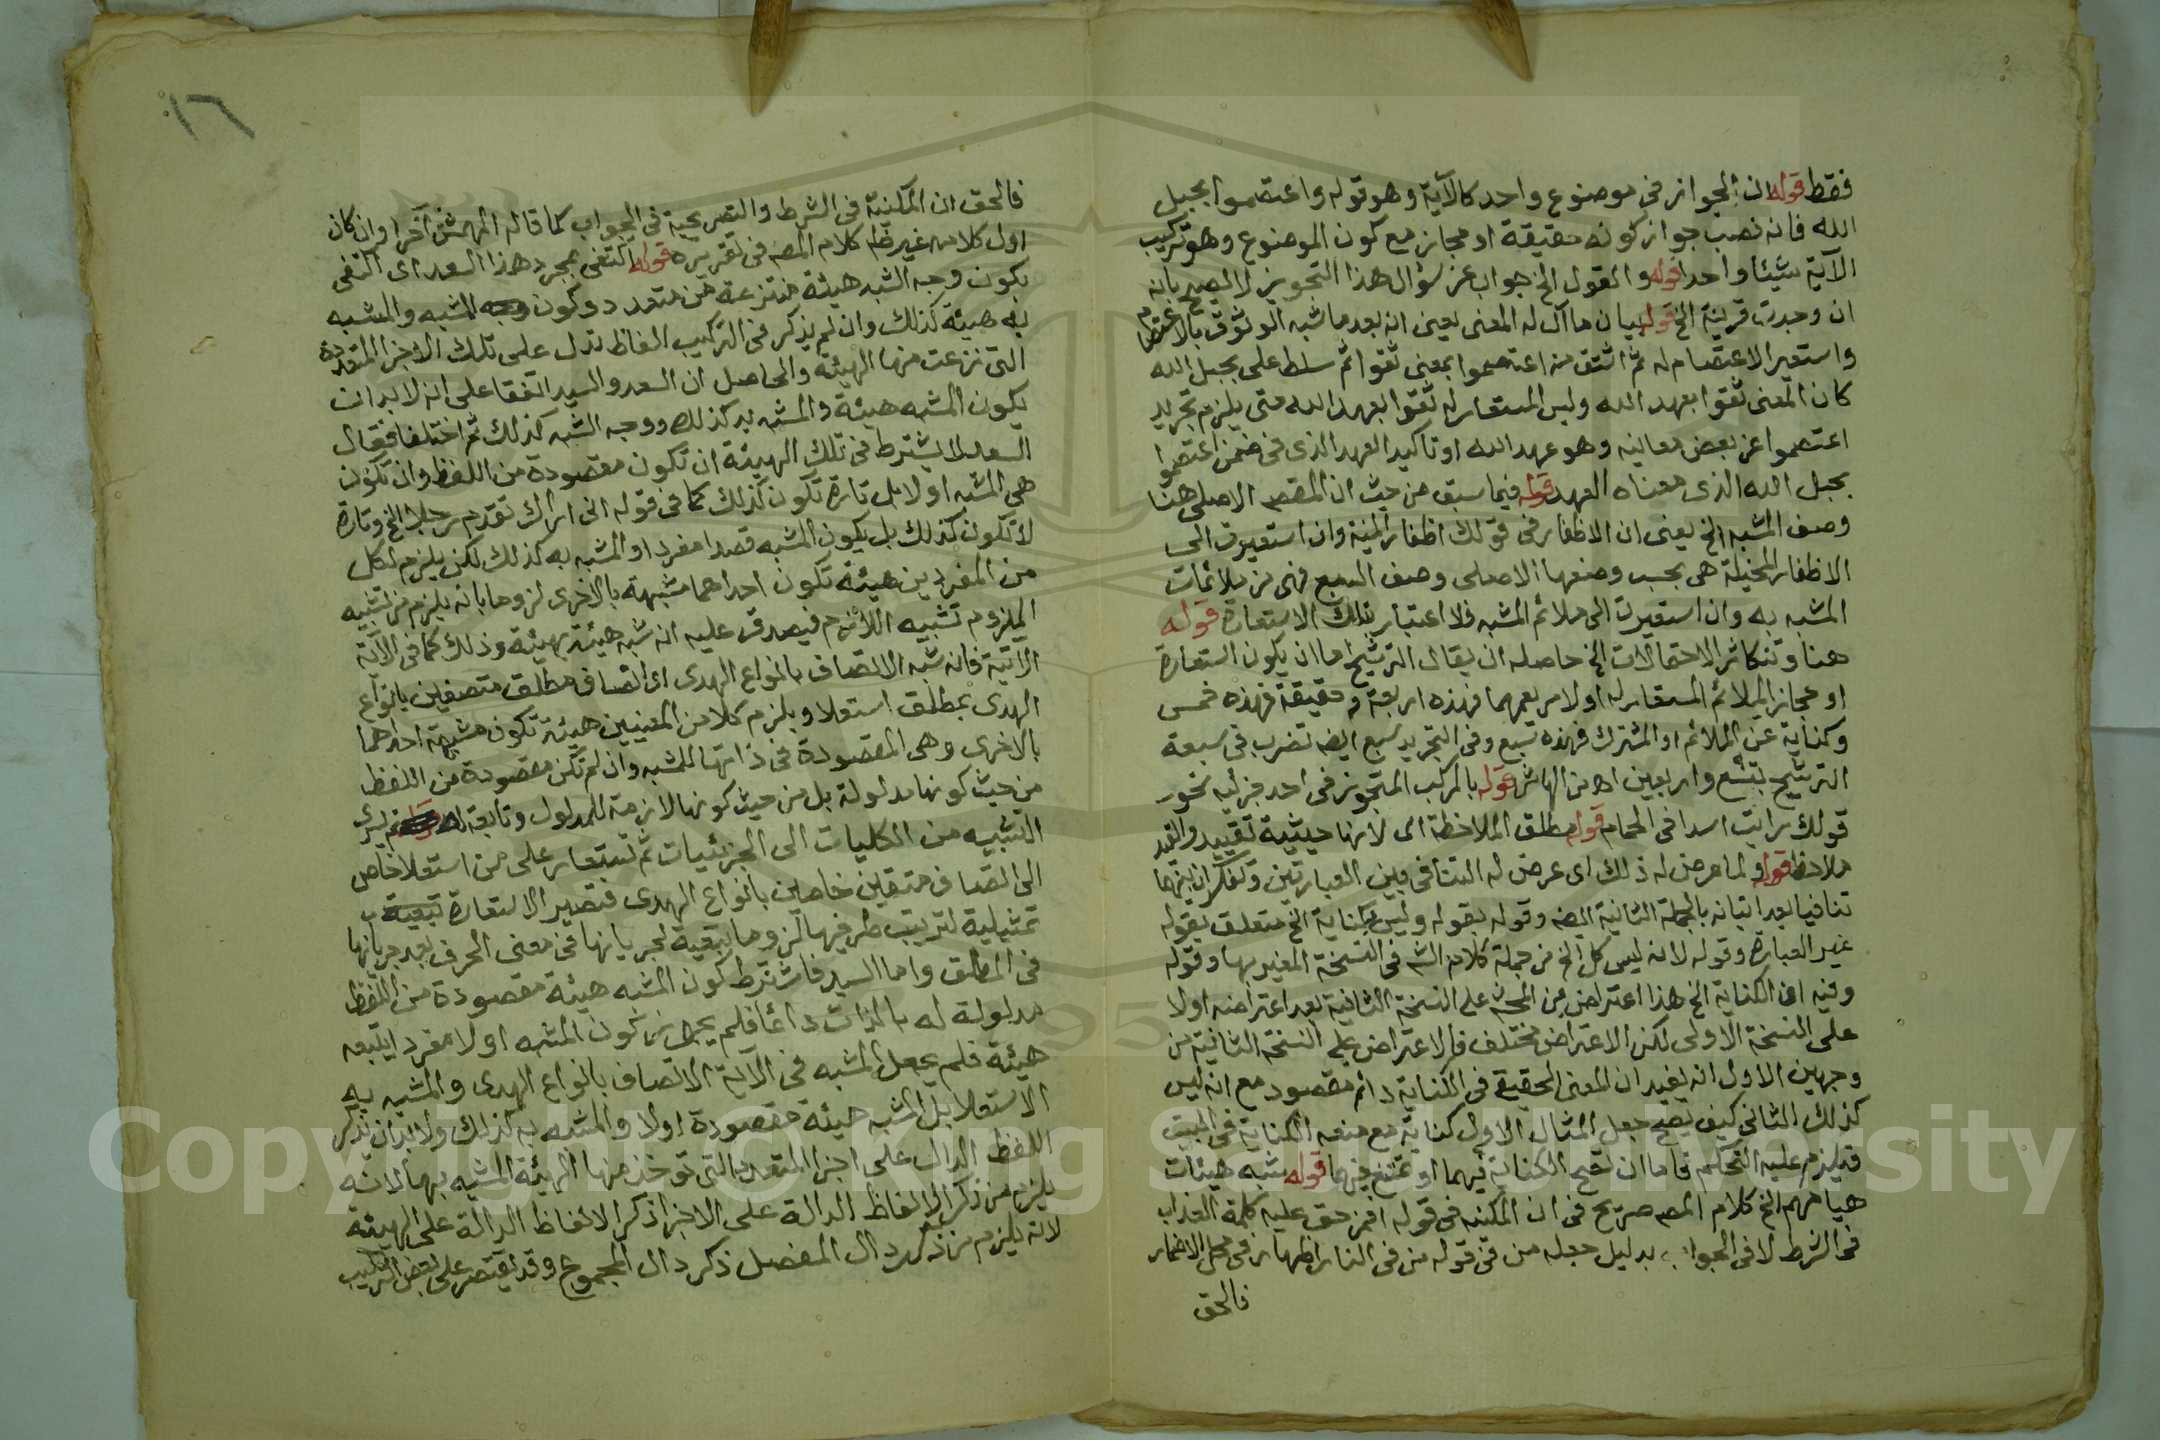 فقط قوله ان الجواز فى موضوع واحد كالآية وهو قوله واعتصموا بحبل
الله فانه نصب جواز كونه حقيقة او مجاز مع كون الموضوع وهو تركيب
الآية شيئا واحدا قوله والقول الخ جواب عن سؤال هذا التجويز لا يصح بانه
ان وجدت قرينة الخ قوله بيان ما آل له المعنى يعنى انه بعد ما شبه الوثوق بالاعتصام
واستعير الاعتصام له ثم اشتق منه اعتصموا بمعنى ثقوا ثم سلط على بحبل الله
كان المعنى ثقوا بعهد الله وليس المستعار له ثقوا بعهد الله حتى يلزم تجريد
اعتصموا عن بعض معانيه وهو عهد الله او تاكيد العهد الذى فى ضمن اعتصموا
بحبل الله الذى معناه العهد قوله فيما سبق من حيث ان المقصـ الاصلى هنا
وصف المشبه الخ يعنى ان الاظفار فى قولك اظفار المنية وان استعيرت الى
الاظفار المخيلة هى بحسب وضعها الاصلى وصف السبع فهى من ملائمات
المشبه به وان استعيرت الى ملائم المشبه فلا اعتبار بتلك الاستعارة قوله
هنا وتتكاثر الاحتمالات الخ حاصله ان يقال الترشيح اما ان يكون استعارة
او مجاز الملائم المستعار له او لامر يعمهما فهذه اربعة وحقيقة فهذه خمس
وكناية عن الملائم او المشترك فهذه سبع وفى التجريد سبع ايضه تضرب فى سبعة
الترشيح بتسع واربعين اه من الهاشم قوله بالمركب المتجوز فى احد جزئيه نحو
قولك رايت اسدا فى الحمام قوله مطلق الملاحظة اى لانها حيثية تقييد والقيد
ملاحظ قوله ولما عرض له ذلك اى عرض له التنافى بين العبارتين وتفكر ان بينهما
تنافيا بعد اتيانه بالجملة الثانية ايضه وقوله بقوله وليس بكناية الخ متعلق بقوله
غير العبارة وقوله لانه ليس كل الخ من جملة كلامه الشـ فى النسخة المغير بها وقوله
وفيه ان الكناية الخ هذا اعتراض من المحشى على النسخة الثانية بعد اعتراضه اولا
على النسخة الاولى لكن الاعتراض مختلف فالاعتراض على النسخة الثانية من
وجهين الاول انه يفيد ان المعنى الحقيقى فى الكناية دائم مقصود مع انه ليس
كذلك الثانى كيف يصح جعل المثال الاول كناية مع منعه الكناية فى الميت
فيلزم عليه التحكم فاما ان تصح الكناية فيهما او تمتنع فيهما قوله شبه هيئات
هيامهم الخ كلام المصـ صريح فى ان المكنيه فى قوله افمن حق عليه كلمة العذاب
فى الشرط لا فى الجواب بدليل جعله من فى قوله من فى النار اظهار فى محل الاضمار
فالحق
١٦
فالحق ان المكنية فى الشرط والتصريحية فى الجواب كما قاله آخرا وان كان
اول كلامه غير كلام المصـ فى تقريره قوله اكتفى بمجرد هذا السعد اى اكتفى
بكون وجه الشبه هيئة منتزعة من متعدد دون كون المشبه والمشبه
به هيئة كذلك وان لم يذكر فى التركيب الفاظ تدل على تلك الاجزا المتعددة
التى نزعت منها الهيئة والحاصل ان السعد والسيد اتفقا على انه لا بد ان
يكون المشبه هيئة والمشبه به كذلك ووجه الشبه كذلك ثم اختلفا فقال
السعد لا يشترط فى تلك الهيئة ان تكون مقصودة من اللفظ وان تكون
هى المشبه اولا بل تارة تكون كذلك كما فى قوله انى اراك تقدم رجلا الخ وتارة
لا تكون كذلك بل يكون المشبه قصدا مفردا والمشبه به كذلك لكن يلزم لكل
من المفردين هيئة تكون احداهما مشبهة بالاخرى لزوما بانه يلزم من تشبيه
الملزوم تشبيه اللازم فيصدق عليه انه شبه هيئة بهيئة وذلك كما فى الآية
الآتية فانه شبه الاتصاف بانواع الهدى اى اتصاف مطلق متصفين بانواع
الهدى بمطلق استعلا ويلزم كلا من المعنيين هيئة تكون مشبهة احداهما
بالاخرى وهى المقصودة فى ذاتها للشبه وان لم تكن مقصودة من اللفظ
من حيث كونها مدلولة بل من حيث كونها لازمة للمدلول وتابعة له ثم يسرى
التشبيه من الكليات الى الجزئيات ثم تستعار على من استعلا خاص
الى اتصاف متقين خاصين بانواع الهدى فتصير الاستعارة تبعية
تمثيلية لتركيب طرفيها لزوما تبعية لجريانها فى معنى الحرف بعد جريانها
فى المطلق واما السيد فاشترط كون المشبه هيئة مقصودة من اللفظ
مدلولة له بالذات دائما فلم يجوز كون المشبه اولا مفردا يتبعه
هيئة فلم يجعل المشبه فى الآية الاتصاف بانواع الهدى والمشبه به
الاستعلا بل المشبه هيئة مقصودة اولا والمشبه به كذلك ولا بد ان يذكر
اللفظ الدال على اجزا المتعدد التى توخذ منها الهيئة المشبه بها لانه
يلزم من ذكر الالفاظ الدالة على الاجزا ذكر الالفاظ الدالة على الهيئة
لانه يلزم من ذكر دال المفصل ذكر دال المجموع وقد يقتصر على بعض التركيب
Copyright © King Saud University